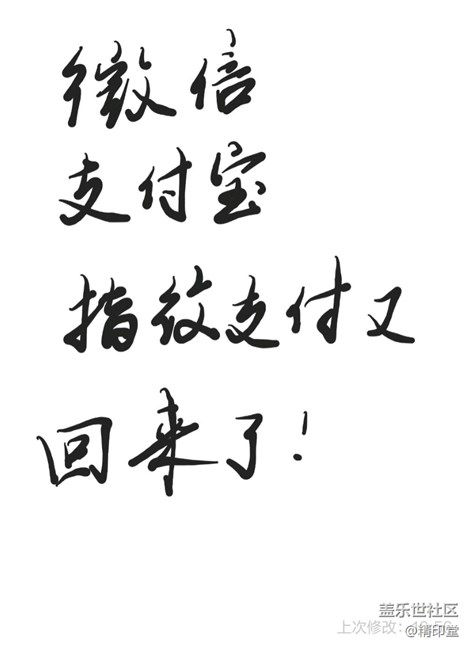 微信
支付宝
指纹支付又
回来了！
盖乐世社区
上次修改：
@精印堂